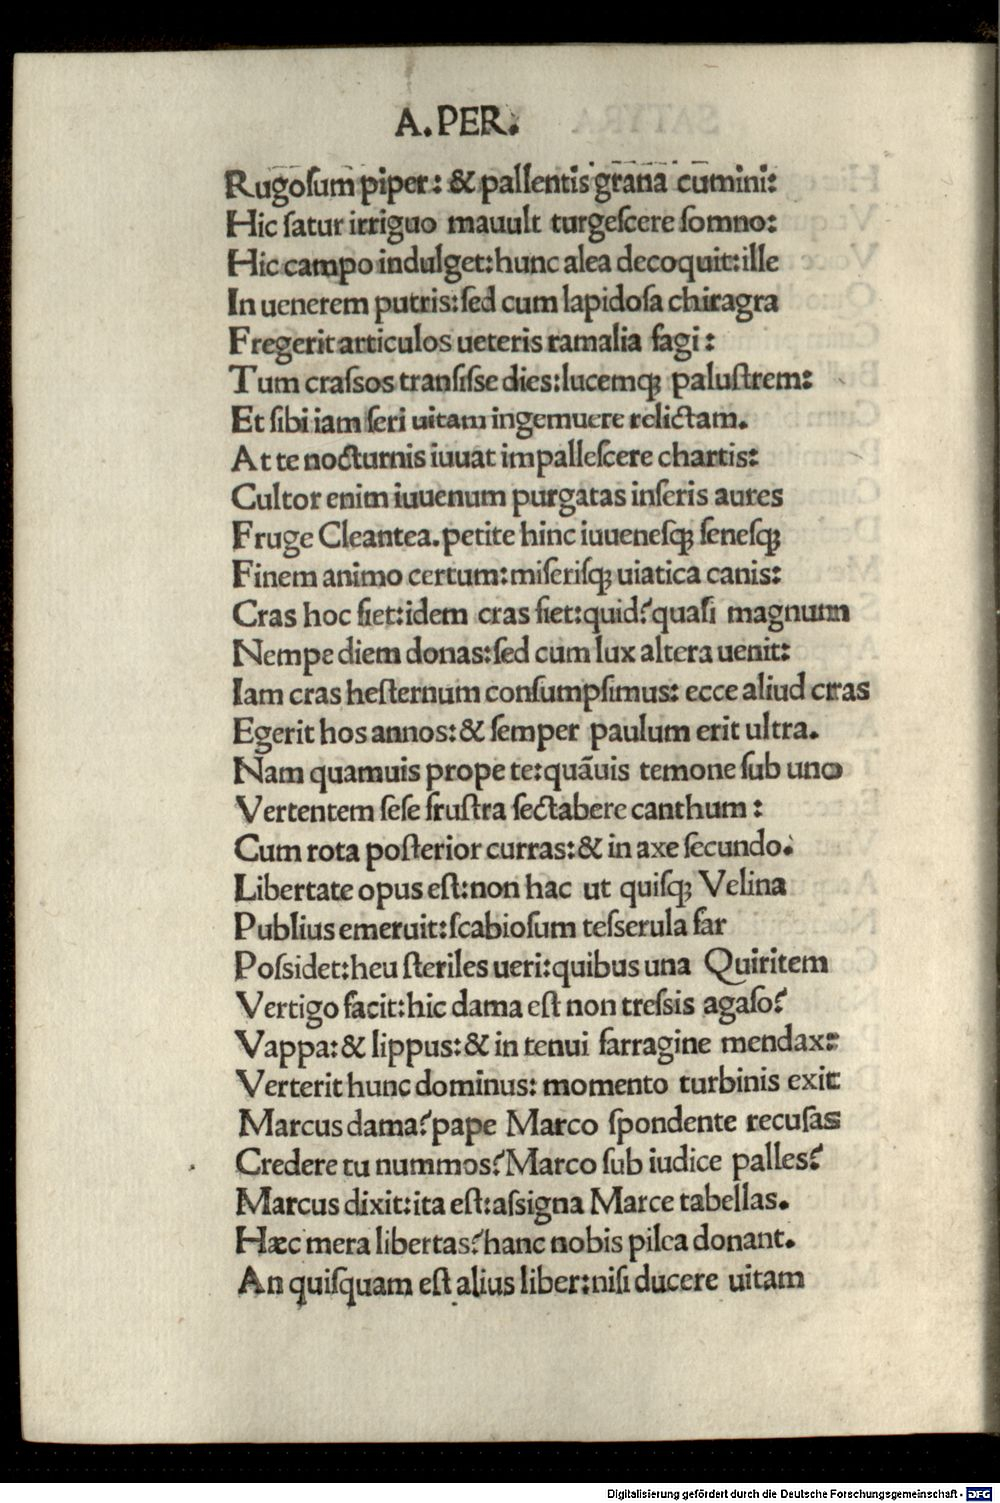 A.PER.
Rugoſum piper: & pallentis grana cumini:
Hic ſatur irriguo mauult turgeſcere ſomno:
Hic campo indulget: hunc alea decoquit: ille
In uenerem putris: ſed cum lapidoſa chiragra
Fregerit articulos ueteris ramalia fagi:
Tum craſsos tranſiſse dies: lucemq; paluſtrem:
Et ſibi iam ſeri uitam ingemuere relictam.
At te nocturnis iuuat impalleſcere chartis:
Cultor enim iuuenum purgatas inſeris aures
Fruge Cleantea. petite hinc iuueneſq; ſeneſq;
Finem animo certum: miſeriſq; uiatica canis:
Cras hoc fiet: idem cras fiet: quid? quaſi magnum
Nempe diem donas: ſed cum lux altera uenit:
Iam cras heſternum conſumpſimus: ecce aliud cras
Egerit hos annos: & ſemper paulum erit ultra.
Nam quamuis prope te: quãuis temone ſub uno
Vertentem ſeſe fruſtra ſectabere canthum:
Cum rota poſterior curras: & in axe ſecundo.
Libertate opus eſt: non hac ut quiſq; Velina
Publius emeruit: ſcabioſum teſserula far
Poſsidet: heu ſteriles ueri: quibus una Quiritem
Vertigo facit: hic dama eſt non treſsis agaſo?
Vappa: & lippus: & in tenui farragine mendax:
Verterit hunc dominus: momento turbinis exit
Marcus dama? pape Marco ſpondente recuſas
Credere tu nummos? Marco ſub iudice palles?
Marcus dixit: ita eſt: aſsigna Marce tabellas.
Hæc mera libertas? hanc nobis pilea donant.
An quiſquam eſt alius liber: niſi ducere uitam
Digitalisierung gefördert durch die Deutsche Forschungsgemeinschaft - DFG